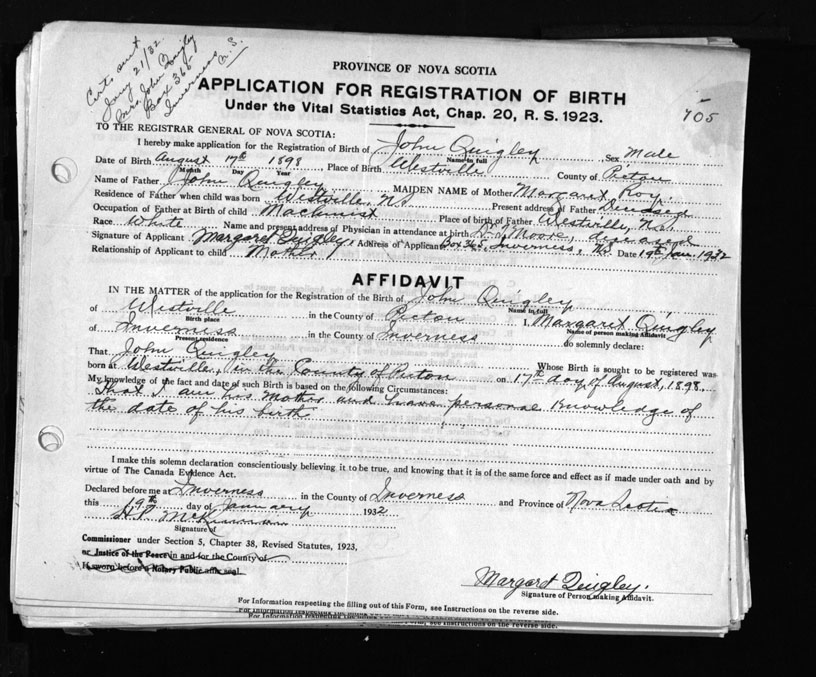 Certs sent
Jany 21/32.
Mrs John Quigley
Box 365
Inverness
N. S.
PROVINCE OF NOVA SCOTIA
APPLICATION FOR REGISTRATION OF BIRTH
Under the Vital Statistics Act, Chap. 20, R. S. 1923.
705
TO THE REGISTRAR GENERAL OF NOVA SCOTIA:
I hereby make application for the Registration of Birth of John Quigley Sex Male
Name in full
Date of Birth August 17th 1898 Place of Birth Westville County of Pictou
Month Day Year
Name of Father John Quigley MAIDEN NAME of Mother Margaret Roy
Residence of Father when child was born Westville, N.S. Present address of Father Deceased
Occupation of Father at Birth of child Machinist Place of birth of Father Westville, N.S.
Race White Name and present address of Physician in attendance at birth Dr. Moore, deceased
Signature of Applicant Margaret Quigley Address of Applicant Box 365, Inverness, NS Date 19th Jan. 1932
Relationship of Applicant to child Mother
AFFIDAVIT
IN THE MATTER of the application for the Registration of the Birth of John Quigley
Name in full
of Westville in the County of Pictou I, Margaret Quigley
Birth place Name of person making Affidavit
of Inverness in the County of Inverness do solemnly declare:
Present residence
That John Quigley Whose Birth is sought to be registered was
born at Westville, in the County of Pictou on 17th day of August, 1898.
My knowledge of the fact and date of such Birth is based on the following Circumstances:
that I am his mother and have personal knowledge of
the date of his birth
I make this solemn declaration conscientiously believing it to be true, and knowing that it is of the same force and effect as if made under oath and by
virtue of The Canada Evidence Act.
Declared before me at Inverness in the County of Inverness and Province of Nova Scotia
this 19th day of January 1932
Signature of
Commissioner under Section 5, Chapter 38, Revised Statutes, 1923,
or Justice of the Peace in and for the County of
If sworn before a Notary Public affix seal.
Margaret Quigley.
Signature of Person making Affidavit.
For Information respecting the filling out of this Form, see Instructions on the reverse side.